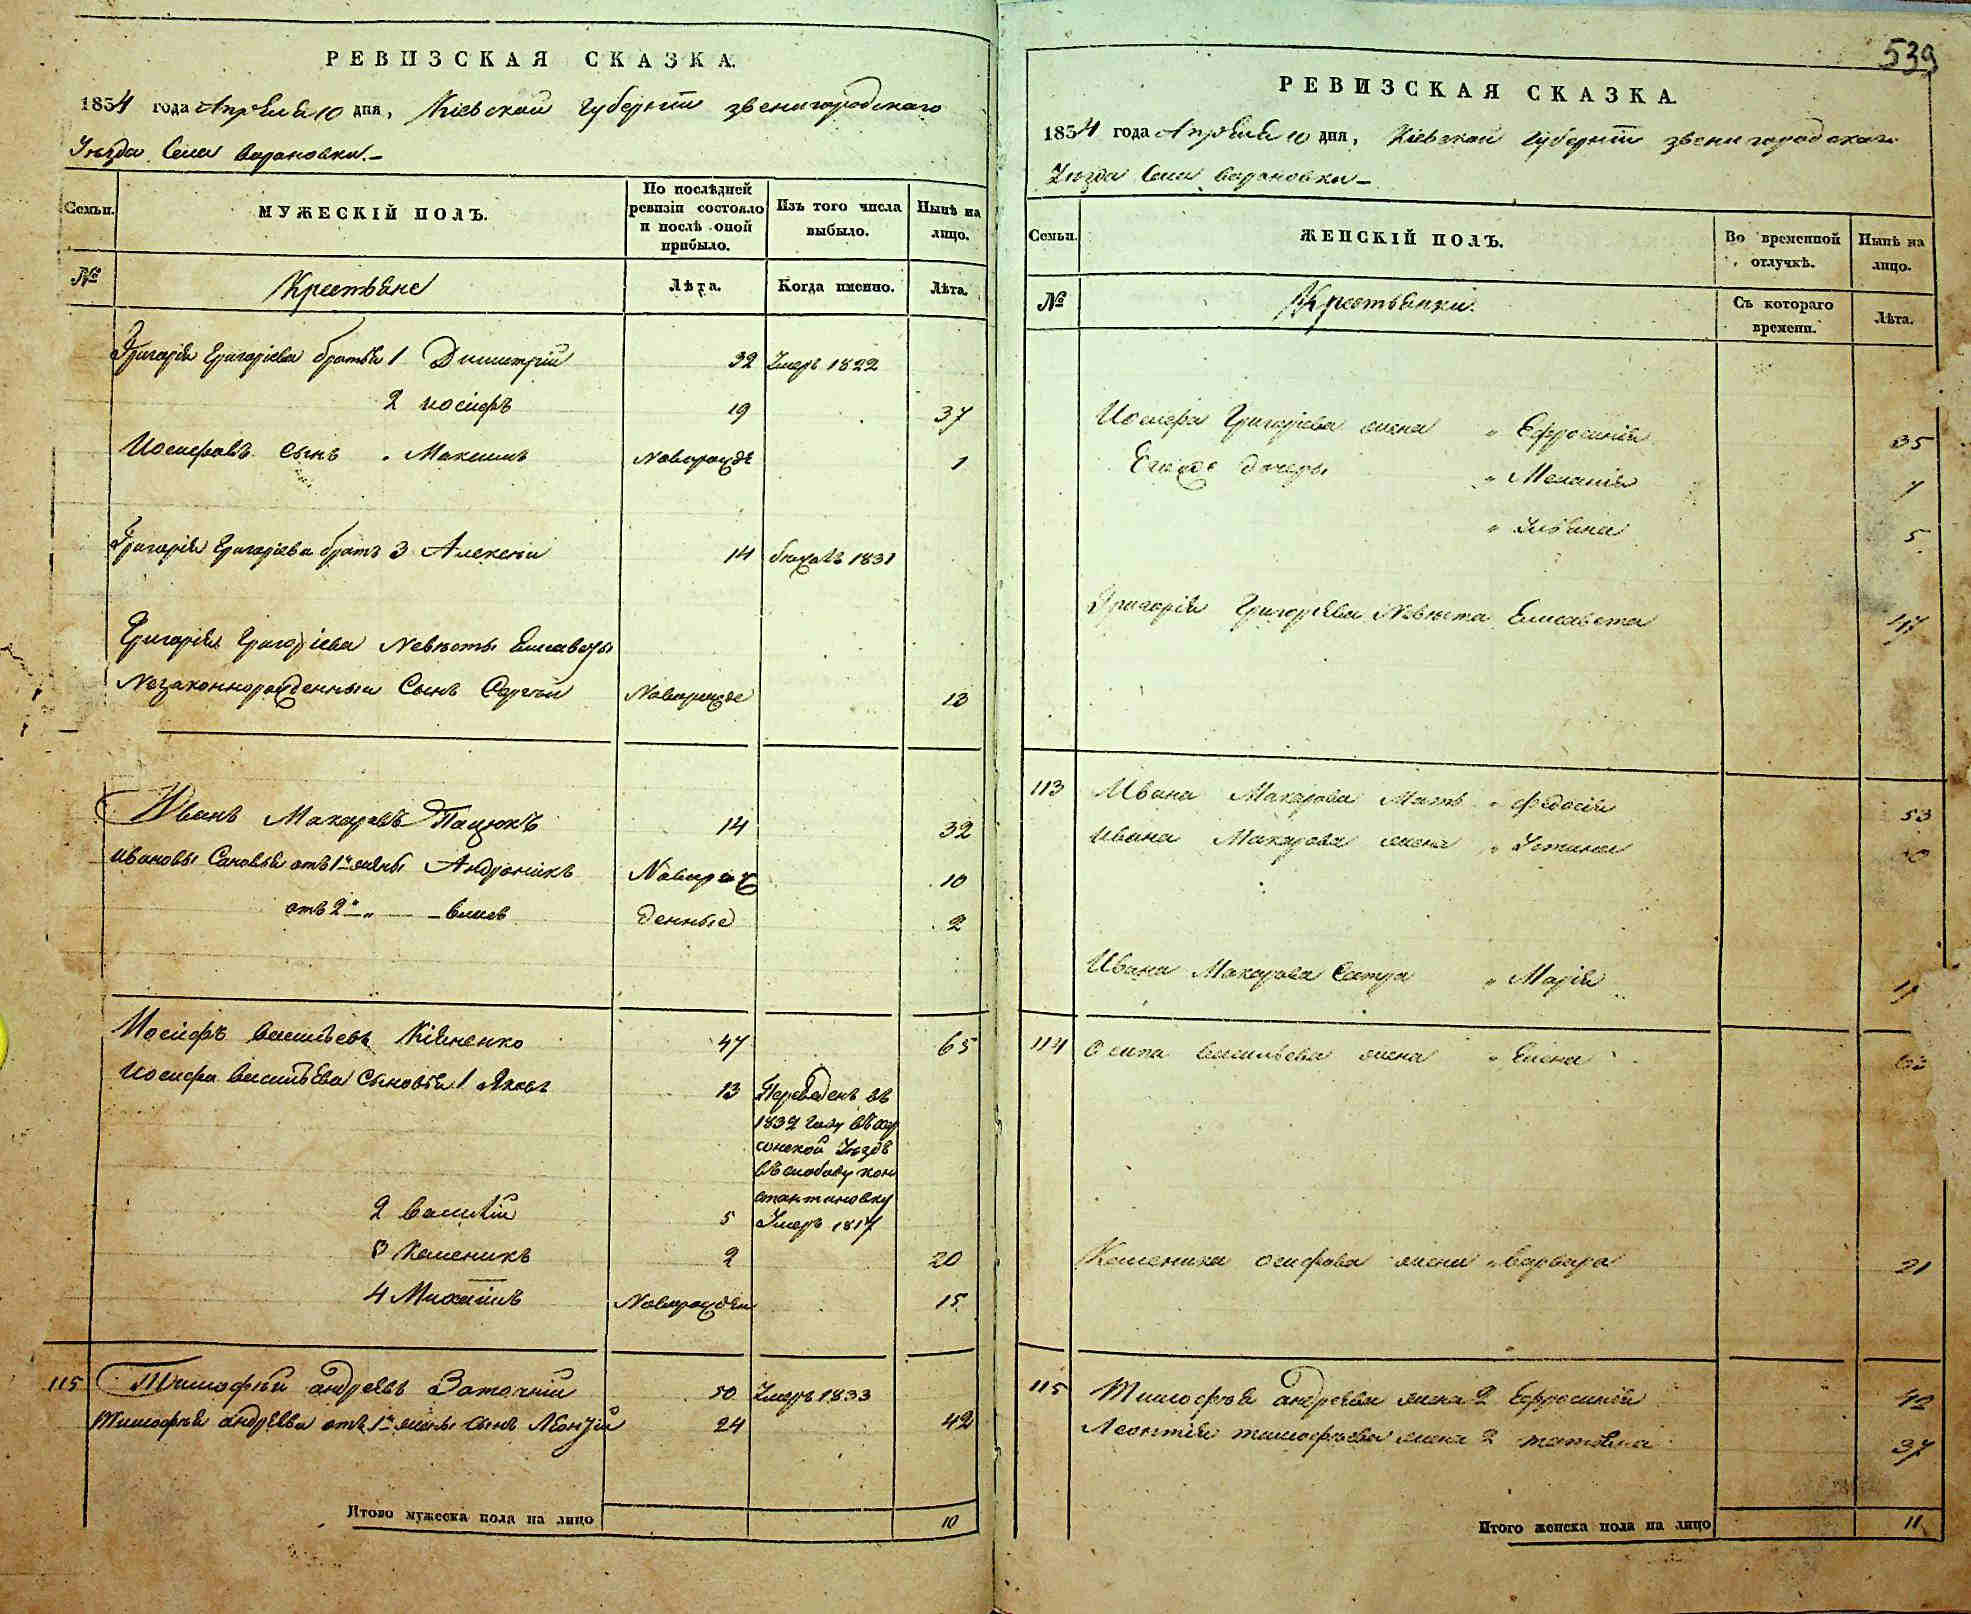 РЕВИЗСКАЯ СКАЗКА.
1834 года Апреля 10 дня, Кіевской Губерніи звенигородскаго
Уезда Села
МУЖЕСКІЙ ПОЛЪ.
Семьи.
По послѣдней ревизіи состояло и послѣ оной прибыло.
Изъ того числа выбыло.
Нынѣ на лицо.
№
Крестьяне
Лѣта.
Когда именно.
Лѣта.
Григорія Григоріева братья 1 Димитрій 32 Умеръ 1822
2 Іосифъ 19 37
Іосифовъ Сынъ Максимъ Новорожде 1
Григорія Григоріева братъ 3 Алексей 14 1831
Григорія Григоріева Невѣсты Елисаветы
Незаконнорожденный Сынъ Сергей Новорожде 13
Иванъ Макаровъ Пацюкъ 14 32
Ивановы Сыновья отъ 1й жены Андроникъ Новорож 10
отъ 2й денные 2
Іосифъ Васильевъ Кіяненко 47 65
Іосифа Васильева Сыновья 1 Яковъ 13 Переведенъ въ
1832 году въ Хер
сонской Уездъ
въ слободу Кон
стантиновку
2 Василій 5 Умеръ 1817
3 2 20
4 Михаилъ Новорожден 15
115 Тимофей андреевъ Заточній 50 Умеръ 1833
Тимофея андреева отъ 1й жены сынъ Леонтій 24 42
Итого мужеска пола на лицо 10
539
РЕВИЗСКАЯ СКАЗКА.
1834 года Апреля 10 дня, Кіевской Губерніи звенигородскаго
Уезда Села
Семьи.
ЖЕНСКІЙ ПОЛЪ.
Во временной отлучкѣ.
Нынѣ на лицо.
№
Крестьянки.
Съ котораго времени.
Лѣта.
Іосифа Григоріева жена Ефросинія 35
Егожъ дочеры Меланія 7
Уліяна 5
Григорія Григоріева Невѣста Елисавета 47
113 Ивана Макарова Мать Федосія 53
Ивана Макарова жена Устинія
Ивана Макарова Сестра Марія
114 Осипа Васильева жена Елена
осифова жена Варвара 21
115 Тимофея андреева жена 2 Ефросинія 42
Леонтія тимофеева жена 2 татіяна 37
Итого женска пола на лицо 11